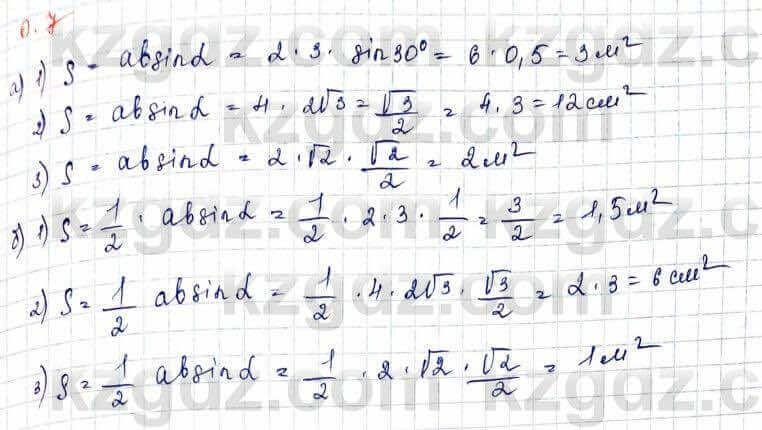 0.7
а) 1) S = absinα = 2 · 3 · sin30° = 6 · 0,5 = 3 м²
2) S = absinα = 4 · 2√3 = √3/2 = 4 · 3 = 12 см²
3) S = absinα = 2 · √2 · √2/2 = 2 м²
б) 1) S = 1/2 · absinα = 1/2 · 2 · 3 · 1/2 = 3/2 = 1,5 м²
2) S = 1/2 absinα = 1/2 · 4 · 2√3 · √3/2 = 2 · 3 = 6 см²
3) S = 1/2 absinα = 1/2 · 2 · √2 · √2/2 = 1 м²
kzgdz.com